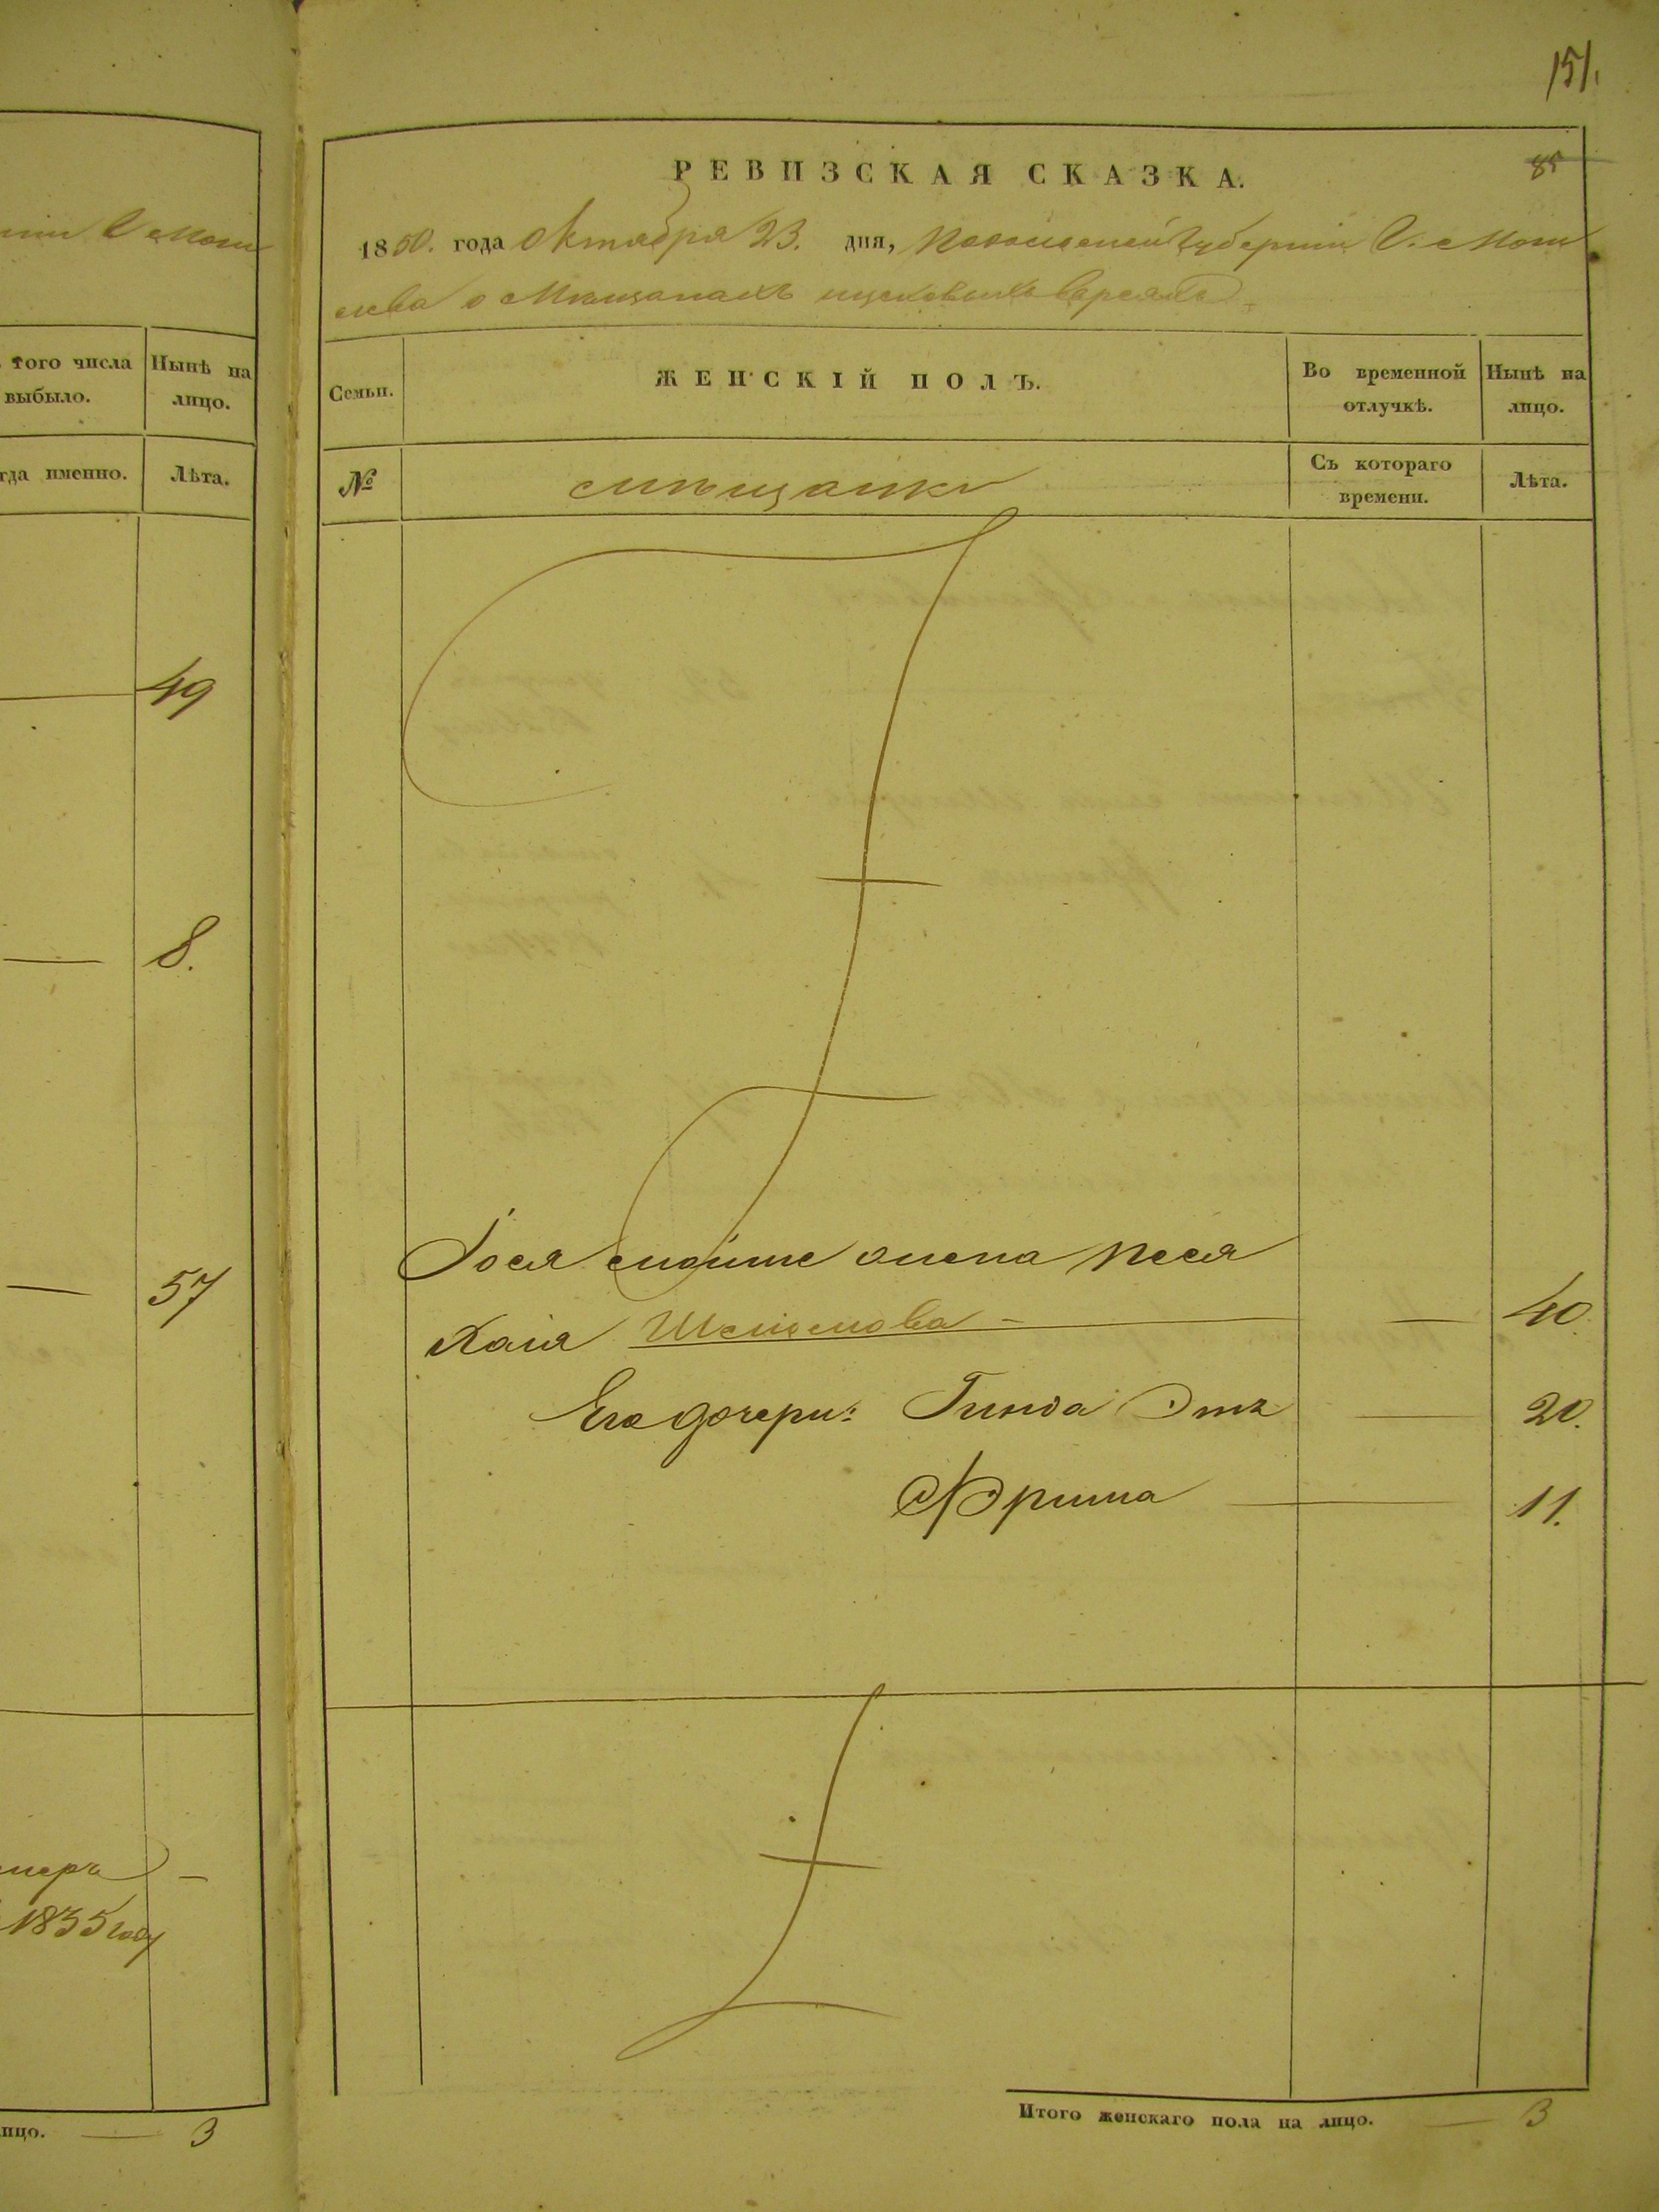 151.
85
РЕВИЗСКАЯ СКАЗКА.
1850. года Октября 23. дня, Подольской Губернии Г. Моги
лева о Мѣщанахъ Евреяхъ
того числа выбыло.
Нынѣ на лицо.
Семьи.
ЖЕНСКІЙ ПОЛЪ.
Во временной отлучкѣ.
Нынѣ на лицо.
гда именно.
Лѣта.
№
Мѣщанки
Съ котораго времени.
Лѣта.
49
8.
57
Іося жена Песя
Хаія 40.
Его дочери: Гинда Эта 20.
Фрима 11.
умеръ
1835 году
лицо. 3
Итого женскаго пола на лицо. 3